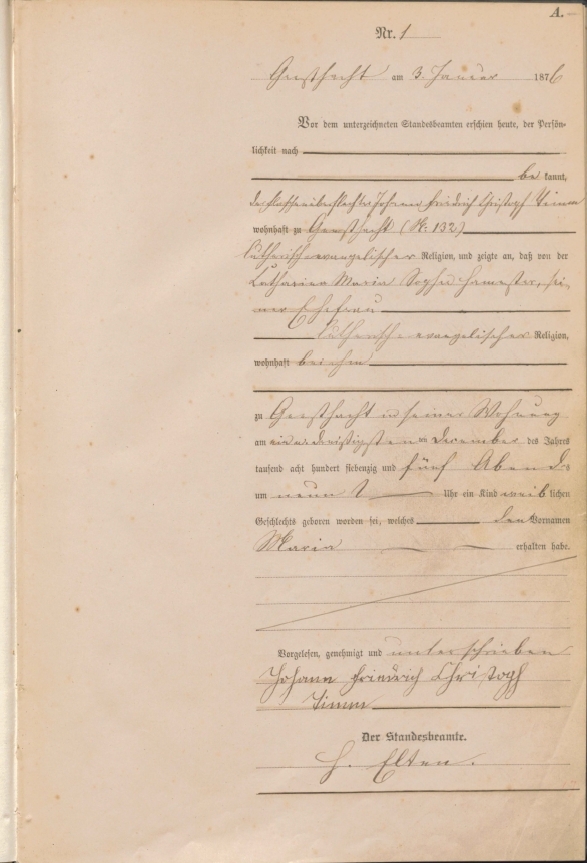 A.
Nr. 1
Geesthacht am 3. Januar 1876
Vor dem unterzeichneten Standesbeamten erschien heute, der Persön-
lichkeit nach
bekannt,
Johann Friedrich Christoph Timm
wohnhaft zu Geesthacht (Nr. 132)
lutherisch-evangelischer Religion, und zeigte an, daß von der
Catharina Maria Sophie Hamester, sei-
ner Ehefrau
lutherisch-evangelischer Religion,
wohnhaft bei ihm
zu Geesthacht in seiner Wohnung
am einunddreißigsten ten December des Jahres
tausend acht hundert siebenzig und fünf Abends
um neun Uhr ein Kind weiblichen
Geschlechts geboren worden sei, welches den Vornamen
Maria erhalten habe.
Vorgelesen, genehmigt und unterschrieben
Johann Friedrich Christoph
Timm
Der Standesbeamte.
H. Elten.